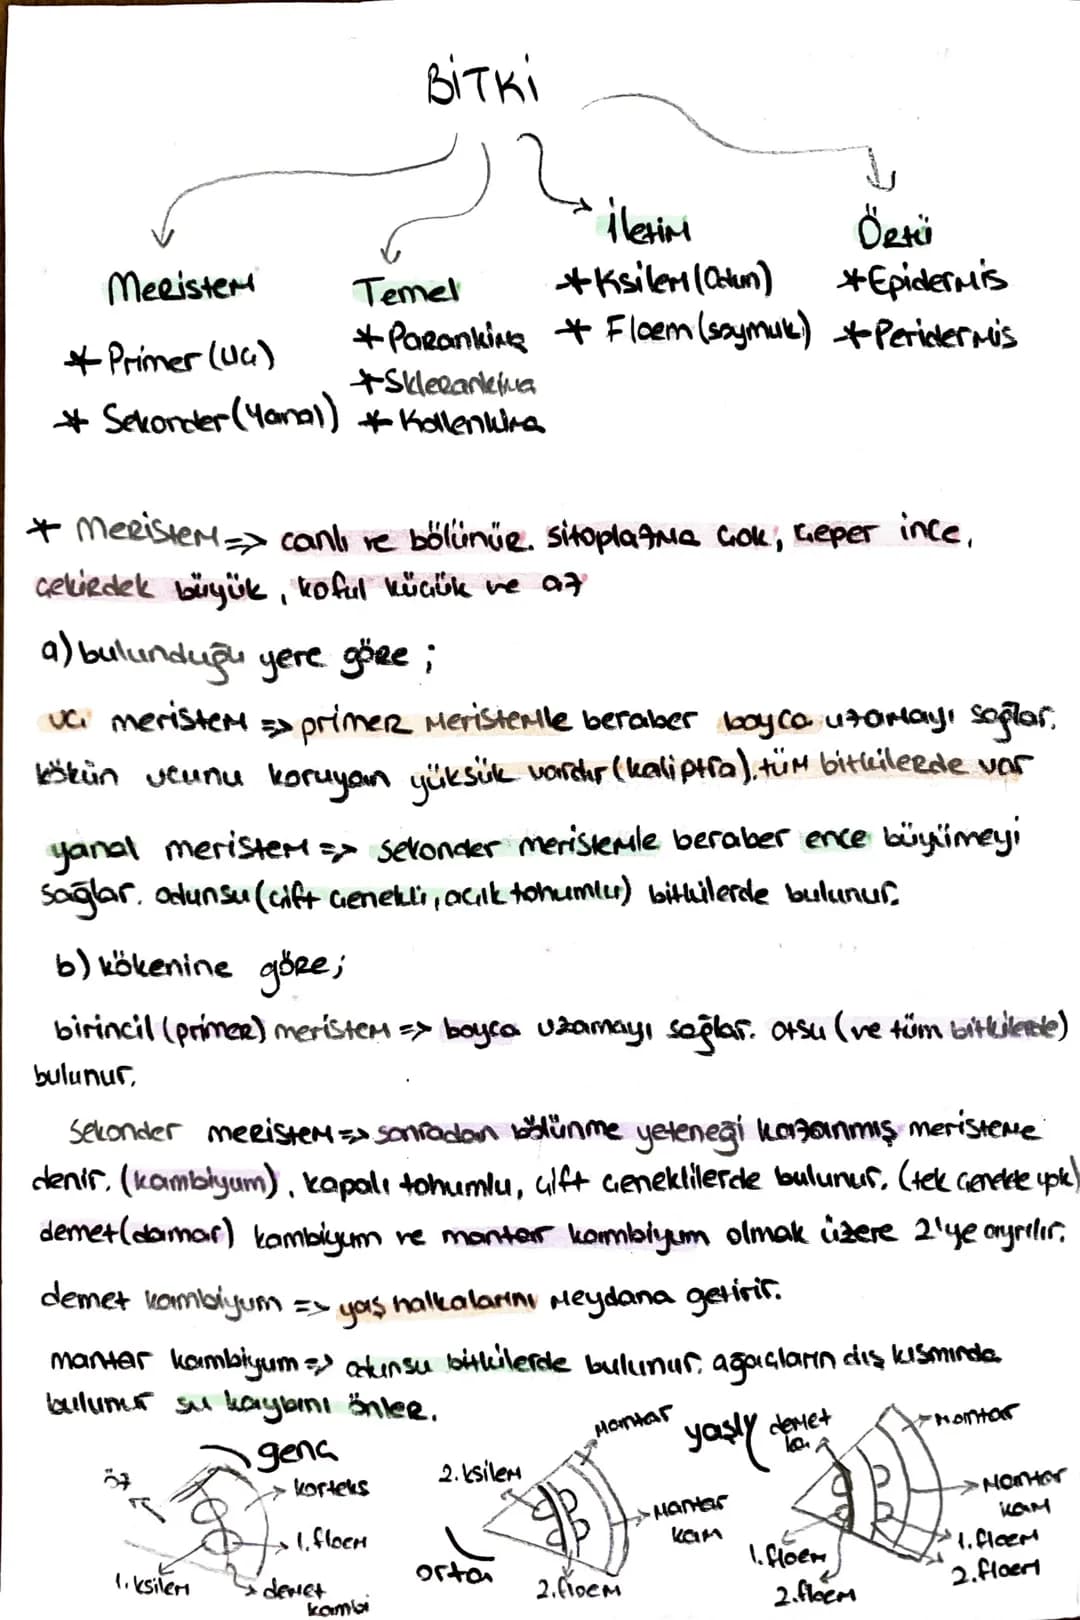 BİTKİ
Meristem
* Primer (Uç)
* Sekonder (Yanal)
Temel
* Parankima
* Sklerankima
* Kollenkima
İletim
* Ksilem (Odun)
* Floem (soymuk)
Örtü
* Epidermis
* Peridermis
* Meristem => canlı ve bölünür. sitoplazma çok, çeper ince,
çekirdek büyük, koful küçük ve az
a) bulunduğu yere göre ;
uç meristem => primer meristemle beraber boyca uzamayı sağlar.
kökün ucunu koruyan yüksük vardır (kaliptra). tüm bitkilerde var
yanal meristem => sekonder meristemle beraber ence büyümeyi
sağlar. odunsu (çift çenekli, açık tohumlu) bitkilerde bulunur.
b) kökenine göre ;
birincil (primer) meristem => boyca uzamayı sağlar. otsu (ve tüm bitkilerde)
bulunur.
Sekonder meristem => sonradan bölünme yeteneği kazanmış meristeme
denir. (kambiyum). kapalı tohumlu, çift çeneklilerde bulunur. (tek çenekte yok)
demet (damar) kambiyum ve mantar kambiyum olmak üzere 2'ye ayrılır.
demet kambiyum => yaş halkalarını meydana getirir.
mantar kambiyum => odunsu bitkilerde bulunur. ağaçların dış kısmında
bulunur su kaybını önler.
genç
öz
korteks
1. floem
demet
kambi
1. ksilem
orta
2. ksilem
mantar
mantar
kam
2. floem
yaşlı
demet
ka
mantar
mantar
kam
1. floem
2. floem
1. floem
2. floem